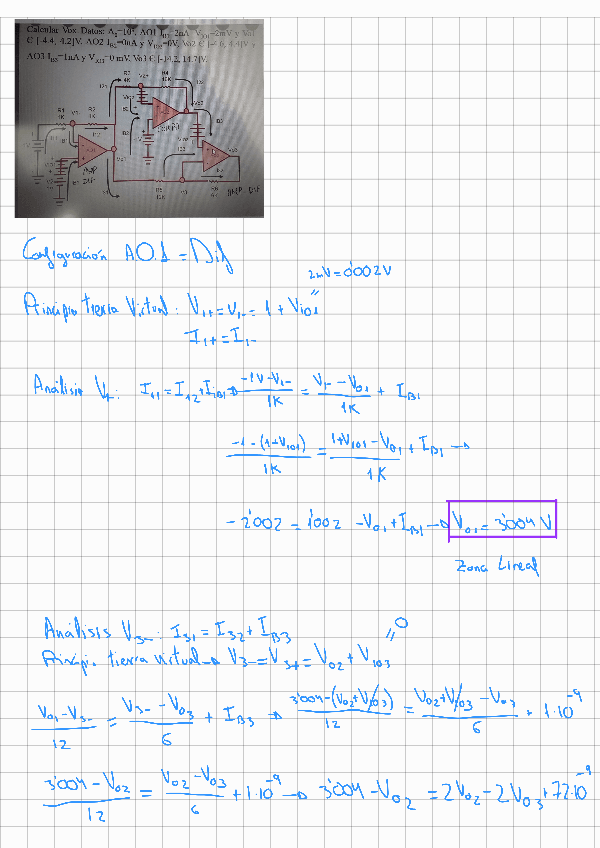 Calcular Vox. Datos: A₀=10⁵, AO1 I_B1=2nA V_IO1=2mV y Vo1
∈ [-4.4, 4.2]V. AO2 I_B2=0nA y V_IO2=0V, Vo2 ∈ [-4.6, 4.4]V y
AO3 I_B3=1nA y V_IO3=0 mV. Vo3 ∈[-14.2, 14.7]V.
Configuración A.O.1 = Dif
2mV = 0'002V
Principio tierra Virtual: V₁₊ = V₁₋ = 1 + V_i01
I₁₊ = I₁₋
Análisis V₁₋: I₁₁ = I₁₂ + I_iB1 → (-1V - V₁₋)/1K = (V₁₋ - V₀₁)/1K + I_B1
(-1 - (1+V_i01))/1K = (1+V_i01 - V₀₁)/1K + I_B1 →
-2'002 = 1'002 - V₀₁ + I_B1 → V₀₁ = 3'004 V
Zona Lineal
Análisis V₃₋: I₃₁ = I₃₂ + I_B3
0
Princip. tierra virtual → V₃₋ = V₃₊ = V₀₂ + V_i03
(V₀₁ - V₃₋)/12 = (V₃₋ - V₀₃)/6 + I_B3 → (3'004 - (V₀₂ + V_i03))/12 = (V₀₂ + V_i03 - V₀₃)/6 + 1·10⁻⁹
(3'004 - V₀₂)/12 = (V₀₂ - V₀₃)/6 + 1·10⁻⁹ → 3'004 - V₀₂ = 2V₀₂ - 2V₀₃ + 72·10⁻⁹